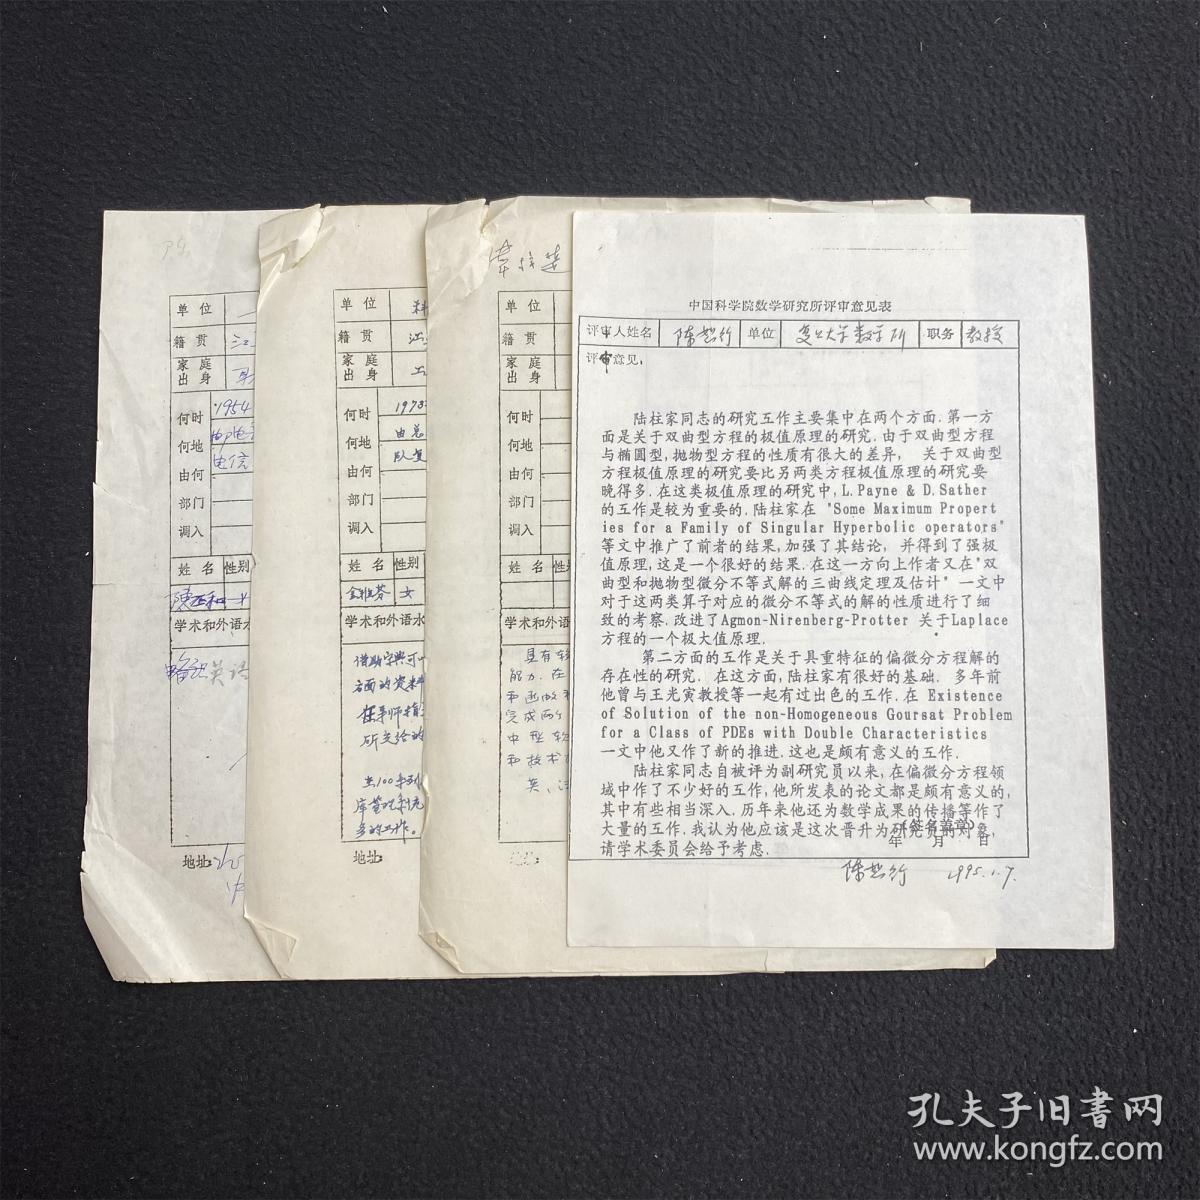 单位
籍贯
江
家庭
出身
何时
何地
由何
部门
调入
1954
电信
姓名 性别
学术和外语水
英语
地址:
单位
籍贯
江
家庭
出身
工
何时
何地
由何
部门
调入
1973
由总
队复
姓名 性别
金雅芬 女
学术和外语水
借助字典可
方面的资料
在导师指
所交给的
库管理系统
多的工作。
地址:
单位
籍贯
家庭
出身
何时
何地
由何
部门
调入
姓名 性别
学术和外语水
具有较
能力.在
完成两个
中型软
和技术
英、法
中国科学院数学研究所评审意见表
评审人姓名 陈恕行 单位 复旦大学数学所 职务 教授
评审意见:
陆柱家同志的研究工作主要集中在两个方面.第一方
面是关于双曲型方程的极值原理的研究.由于双曲型方程
与椭圆型,抛物型方程的性质有很大的差异, 关于双曲型
方程极值原理的研究要比另两类方程极值原理的研究要
晚得多.在这类极值原理的研究中,L.Payne & D.Sather
的工作是较为重要的.陆柱家在 "Some Maximum Propert
ies for a Family of Singular Hyperbolic operators"
等文中推广了前者的结果,加强了其结论, 并得到了强极
值原理,这是一个很好的结果.在这一方向上作者又在"双
曲型和抛物型微分不等式解的三曲线定理及估计" 一文中
对于这两类算子对应的微分不等式的解的性质进行了细
致的考察.改进了Agmon-Nirenberg-Protter 关于Laplace
方程的一个极大值原理.
第二方面的工作是关于具重特征的偏微分方程解的
存在性的研究. 在这方面,陆柱家有很好的基础. 多年前
他曾与王光寅教授等一起有过出色的工作.在 Existence
of Solution of the non-Homogeneous Goursat Problem
for a Class of PDEs with Double Characteristics
一文中他又作了新的推进.这也是颇有意义的工作.
陆柱家同志自被评为副研究员以来,在偏微分方程领
域中作了不少好的工作,他所发表的论文都是颇有意义的,
其中有些相当深入.历年来他还为数学成果的传播等作了
大量的工作.我认为他应该是这次晋升为研究员的对象,
(签名盖章)
年 月 日
请学术委员会给予考虑.
陈恕行 1995.1.7.
孔夫子旧书网
www.kongfz.com